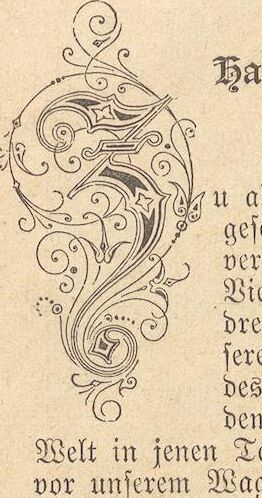 Ha
Zu a
geſ
ver
Vie
dre
ſere
des
den
Welt in jenen Ta
vor unſerem Wag